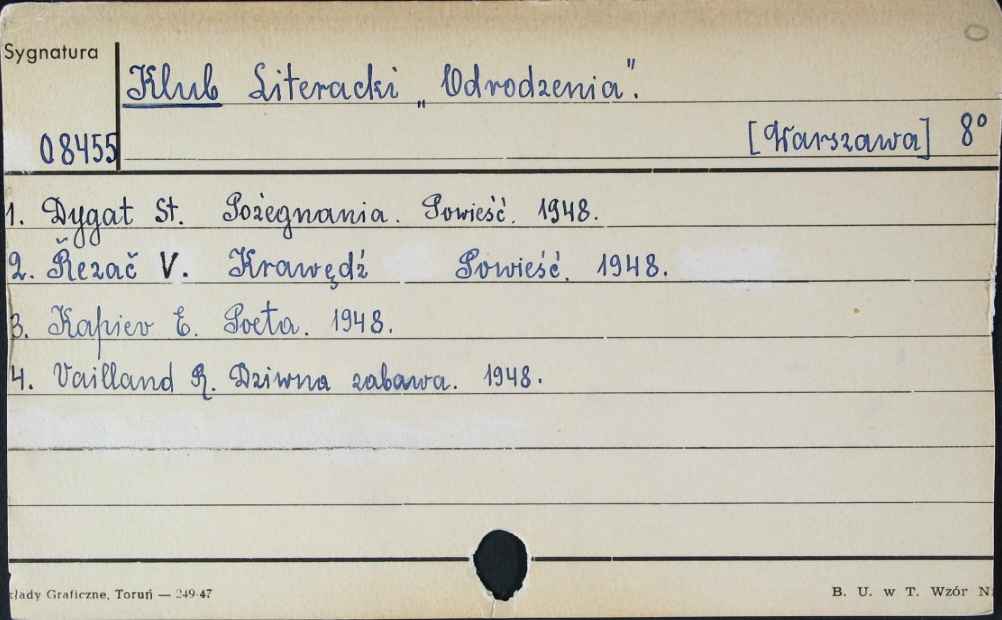 Sygnatura
Klub Literacki „Odrodzenia".
08455
[Warszawa] 8°
1. Dygat St. Pożegnania. Powieść. 1948.
2. Řezač V. Krawędź Powieść. 1948.
3. Kapiev E. Poeta. 1948.
4. Vailland R. Dziwna zabawa. 1948.
kłady Graficzne, Toruń — 249-47
B. U. w T. Wzór N